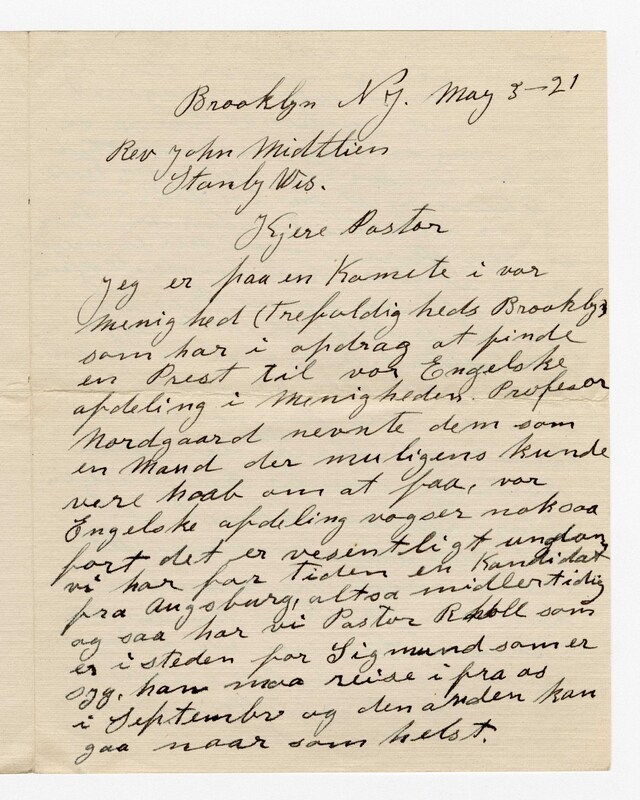 Brooklyn N.Y. May 3-21
Rev John Midtlien
Stanly Wis.
Kjere Pastor
Jeg er paa en Komete i vor
menighed (Trefoldigheds Brooklyn
som har i opdrag at finde
en Prest til vor Engelske
afdeling i Menigheden. Profesor
Nordgaard nevnte dem som
en Mand der muligens kunde
vere haab om at faa, vor
Engelske afdeling vogser noksaa
fort det er vesentligt ungdom
vi har for tiden en Kandidat
fra Augsburg, altsa midlertidig
og saa har vi Pastor som
er i steden for Sigmund som er
syg. han maa reise ifra os
i Septembr og den anden kan
gaa naar som helst.